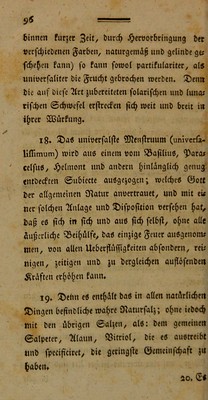 96
binnen kurzer Zeit, durch Hervorbringung der
verschiedenen Farben, naturgemäß und gelinde ge-
schehen kann) so kann sowol partikulariter, als
universaliter die Frucht gebrochen werden. Denn
die auf diese Art zubereiteten solarischen und luna-
rischen Schwefel erstrecken sich weit und breit in
ihrer Würkung.
18. Das universalste Menstruum (universa-
lissimum) wird aus einem vom Basilius, Para-
celsus, Helmont und andern hinlänglich genug
entdeckten Subjecte ausgezogen; welches Gott
der allgemeinen Natur anvertrauet, und mit ei-
ner solchen Anlage und Disposition versehen hat,
daß es sich in sich und aus sich selbst, ohne alle
äußerliche Beihülfe, das einzige Feuer ausgenom-
men, von allen Ueberflüßigkeiten absondern, rei-
nigen, zeitigen und zu dergleichen auflösenden
Kräften erhöhen kann.
19. Denn es enthält das in allen natürlichen
Dingen befindliche wahre Natursalz; ohne jedoch
mit den übrigen Salzen, als: dem gemeinen
Salpeter, Alaun, Vitriol, die es austreibt
und specificiret, die geringste Gemeinschaft zu
haben.
20. Es